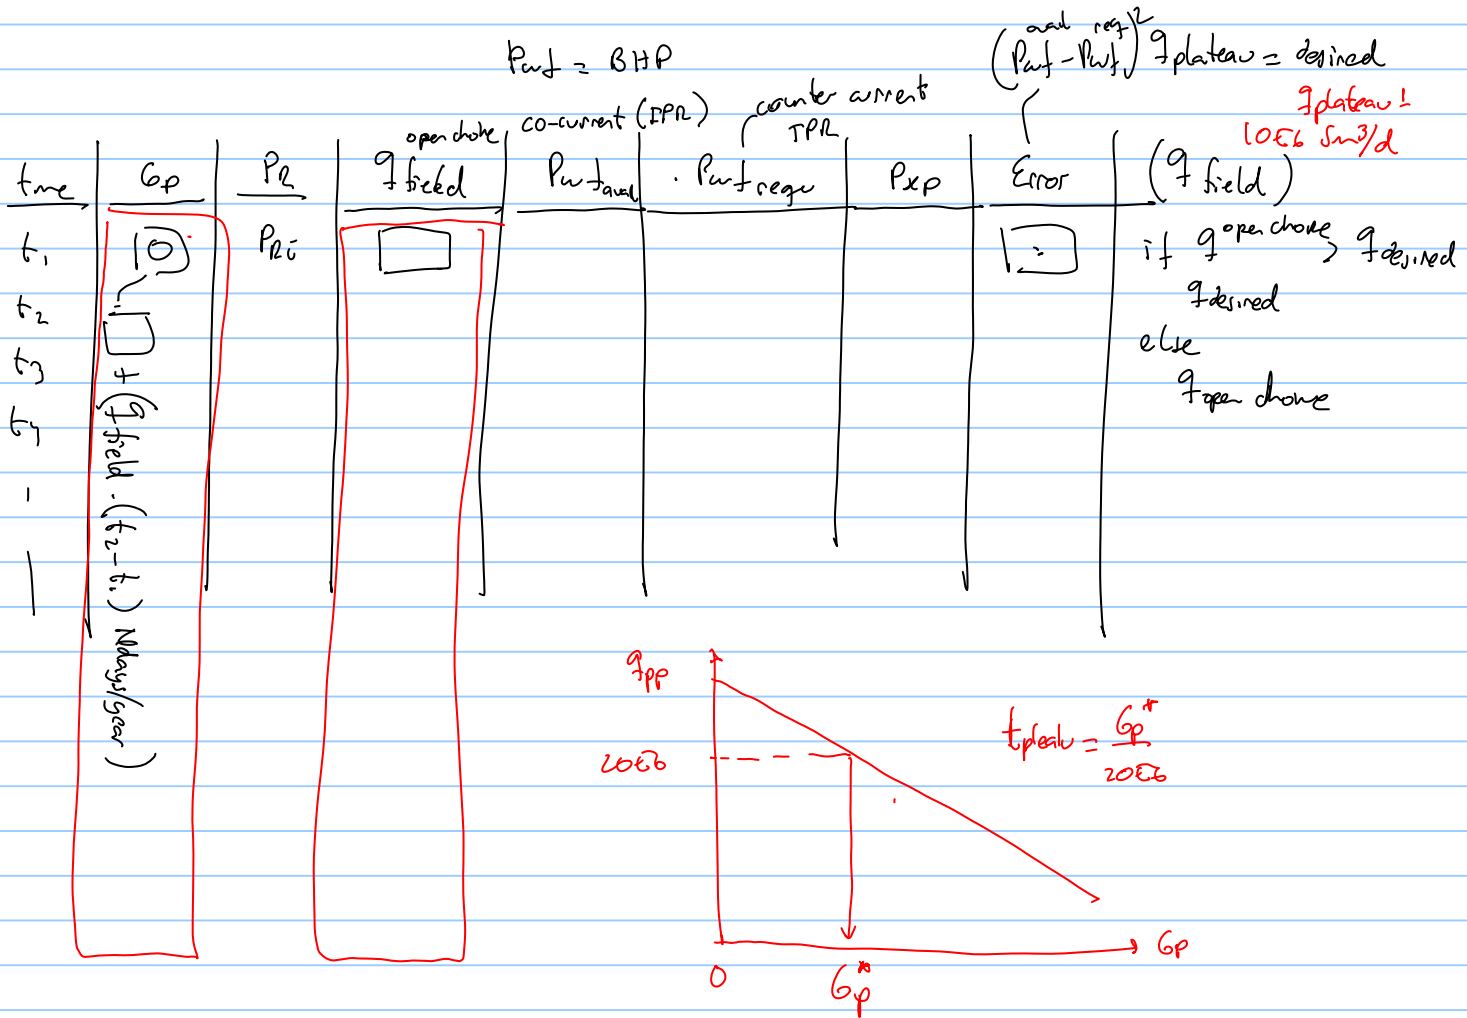 Pwf = BHP
(Pwf avail - Pwf req)² q plateau = desired
q plateau!
10E6 Sm³/d
co-current (IPR)
counter current
TPR
open choke
time Gp PR q field Pwf avail Pwf requ Pxp Error (q field)
t1 0 PRi
t2
t3
t4
+ (q field · (t2 - t1) Ndays/year)
if q open choke > q desired
q desired
else
q open choke
qpp
20E6
0
Gp*
Gp
t plateau = Gp* / 20E6